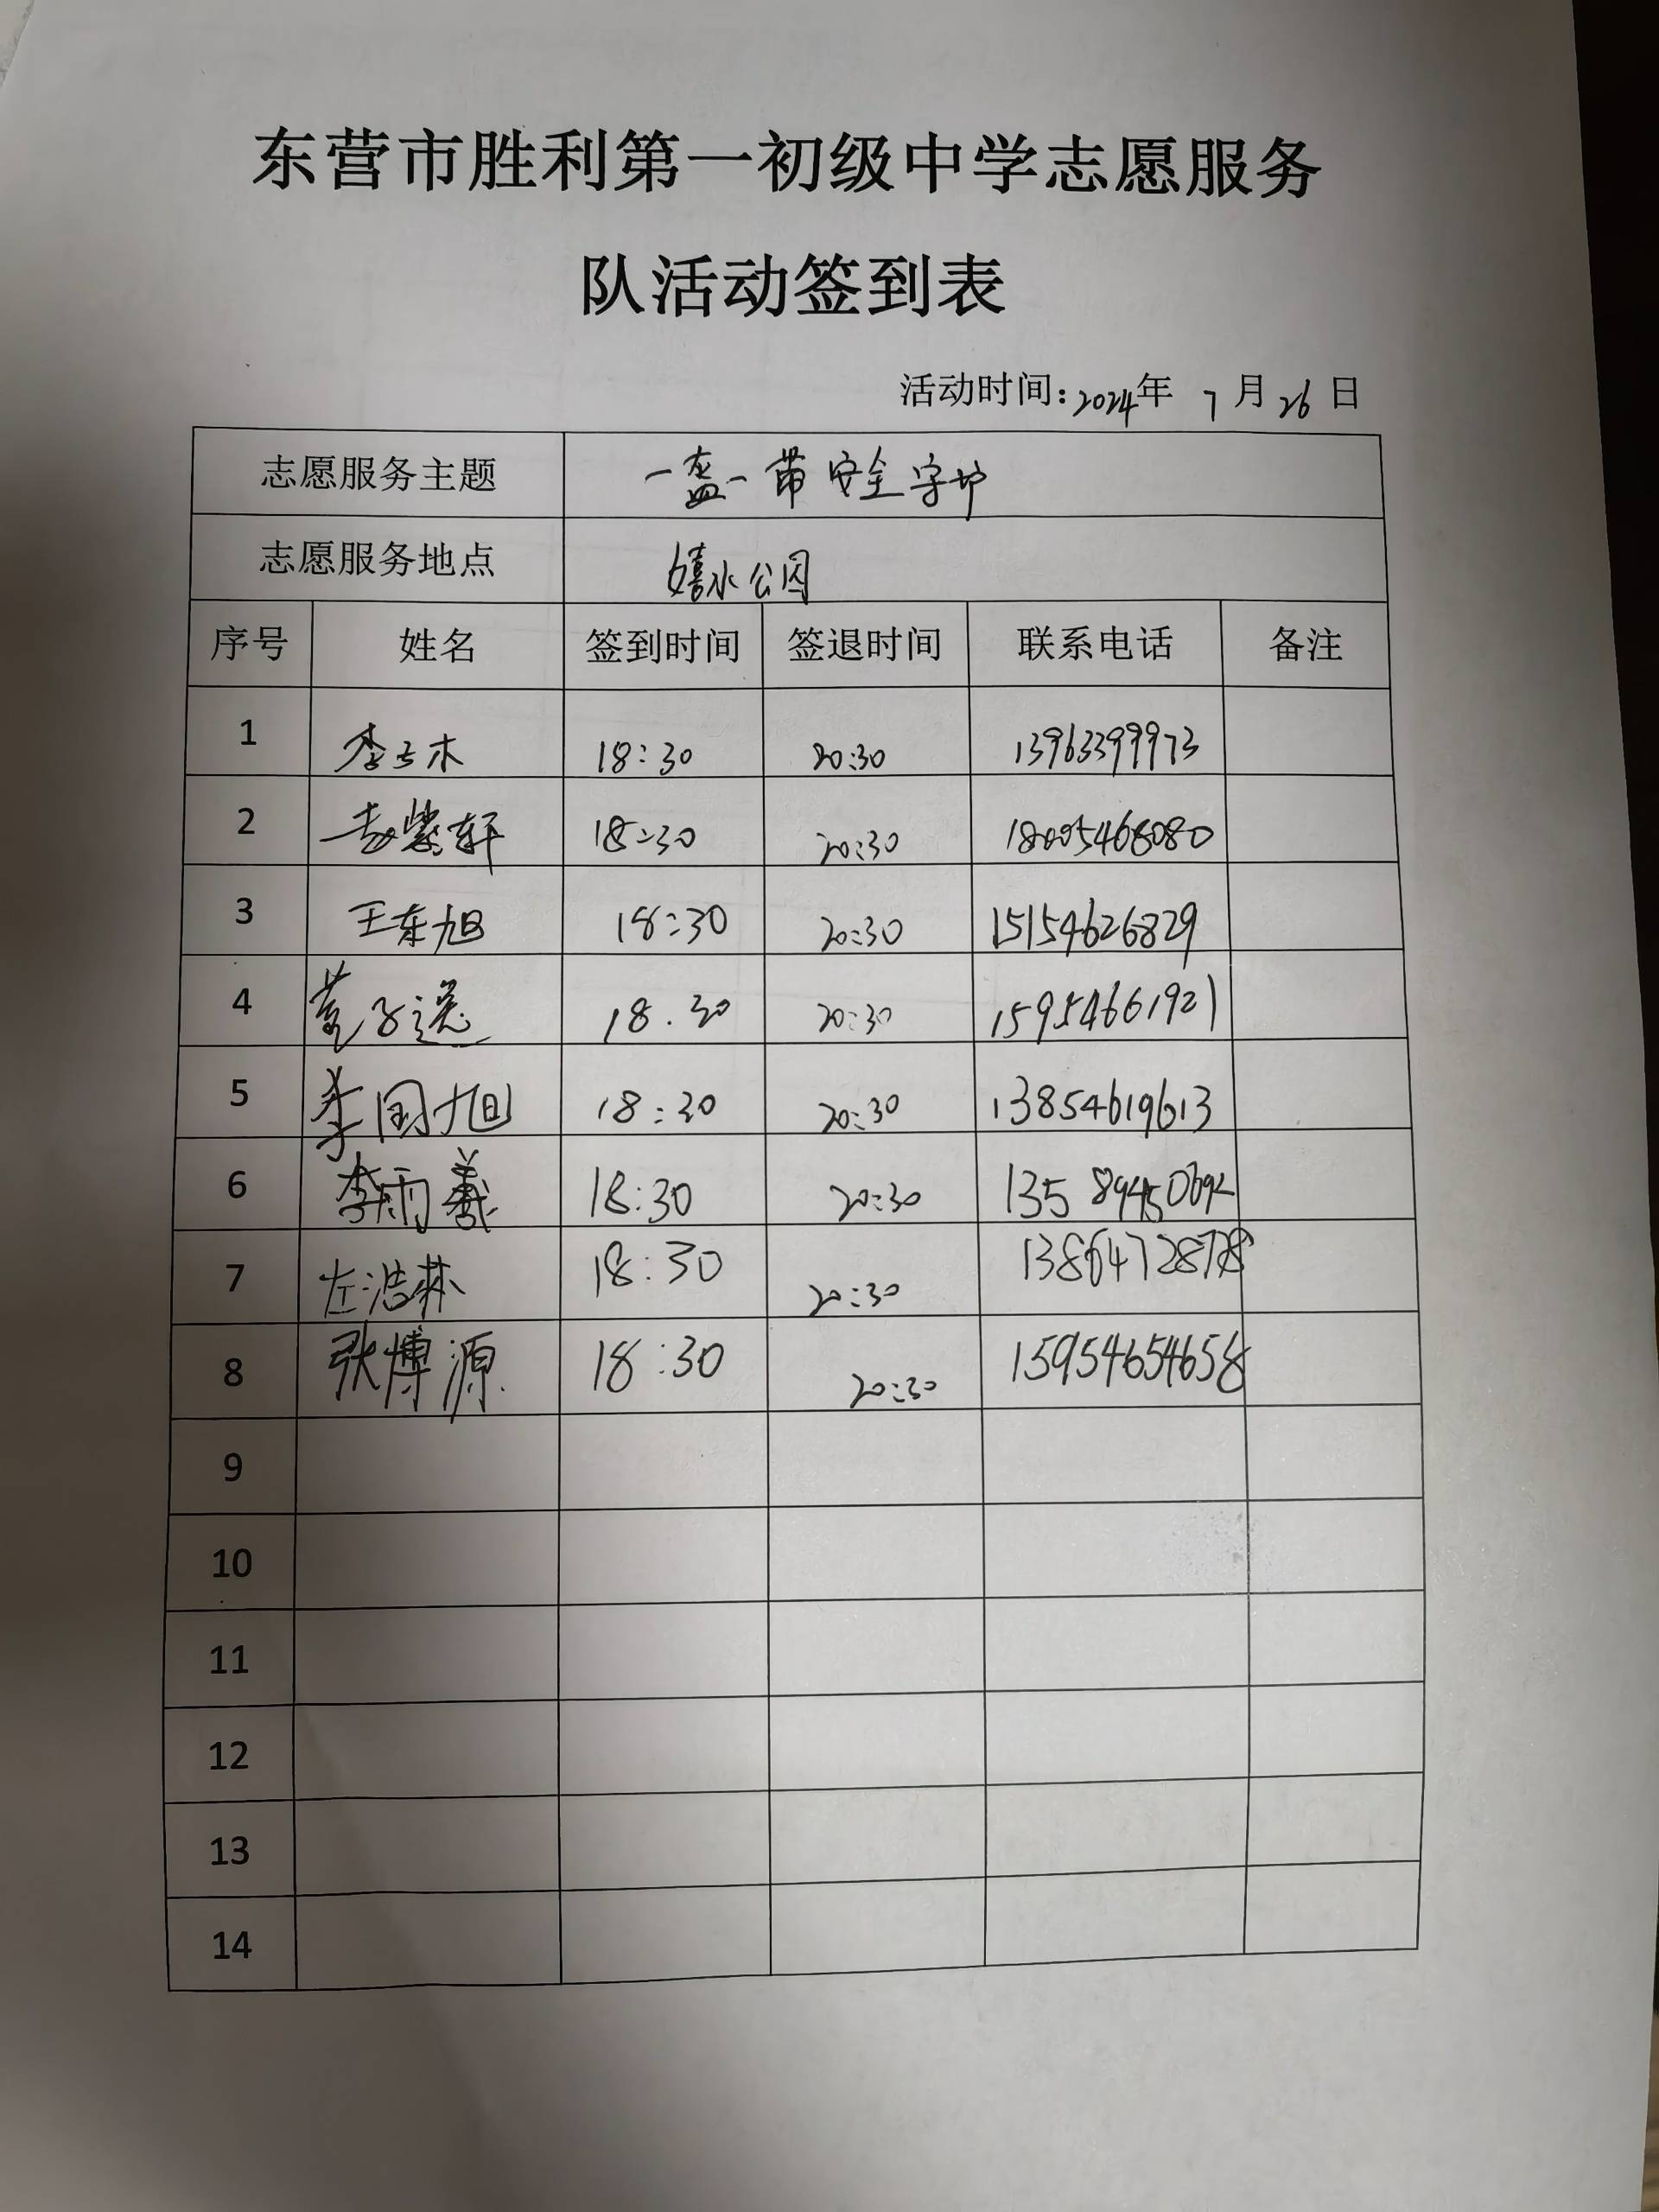 东营市胜利第一初级中学志愿服务
队活动签到表
活动时间:2024年 7月26日
志愿服务主题 一盔一带安全守护
志愿服务地点 嬉水公园
序号 姓名 签到时间 签退时间 联系电话 备注
1 李木 18:30 20:30 13963399973
2 紫轩 18:30 20:30 18005468080
3 王东旭 18:30 20:30 15154626829
4 子逸 18.30 20:30 15954661921
5 李国旭 18:30 20:30 13854619613
6 李雨羲 18:30 20:30
7 左浩林 18:30 20:30
8 张博源 18:30 20:30 15954654658
9
10
11
12
13
14